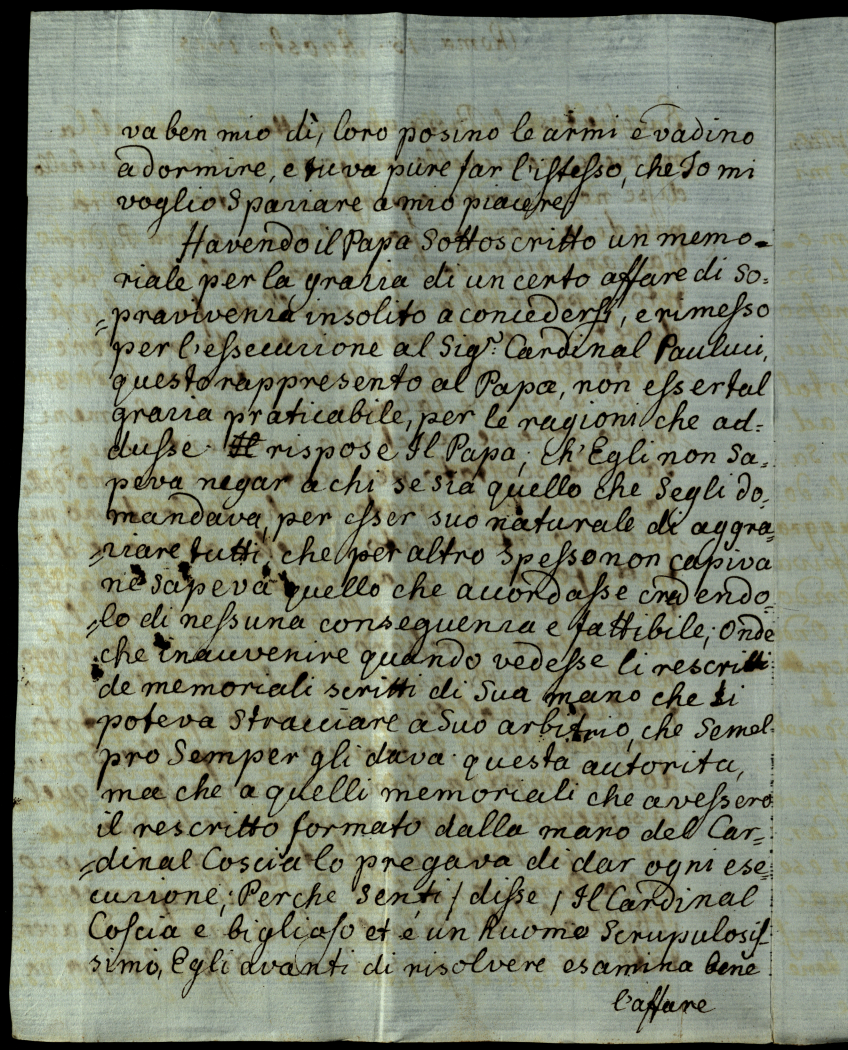 va ben mio dì, loro posino le armi e vadino
a dormire, e tu va pure far l'istesso, che Jo mi
voglio spaziare a mio piacere
Havendo il Papa sottoscritto un memo=
riale per la grazia di un certo affare di so=
=pravivenza insolito a concedersi, e rimesso
per l'essecuzione al Sig.r Cardinal Pauluci,
questo rappresento al Papa, non esser tal
grazia praticabile, per le ragioni che ad=
dusse. rispose Il Papa, ch'Egli non sa=
peva negar a chi se sia quello che segli do=
mandava, per esser suo naturale di aggra=
=ziare tutti, che per altro spesso non capiva
ne sapeva quello che acordasse credendo=
=lo di nessuna conseguenza e fattibile; Onde
che inauvenire quando vedesse li rescritti
de memoriali scritti di sua mano che li
poteva stracciare a suo arbitrio, che semel
pro semper gli dava questa autorita,
ma che a quelli memoriali che avessero
il rescritto formato dalla mano del Car=
=dinal Coscia lo pregava di dar ogni ese=
cuzione; Perche senti / disse / Il Cardinal
Coscia e et é un huomo scrupulosis
simo, Egli avanti di risolvere esamina bene
l'affare